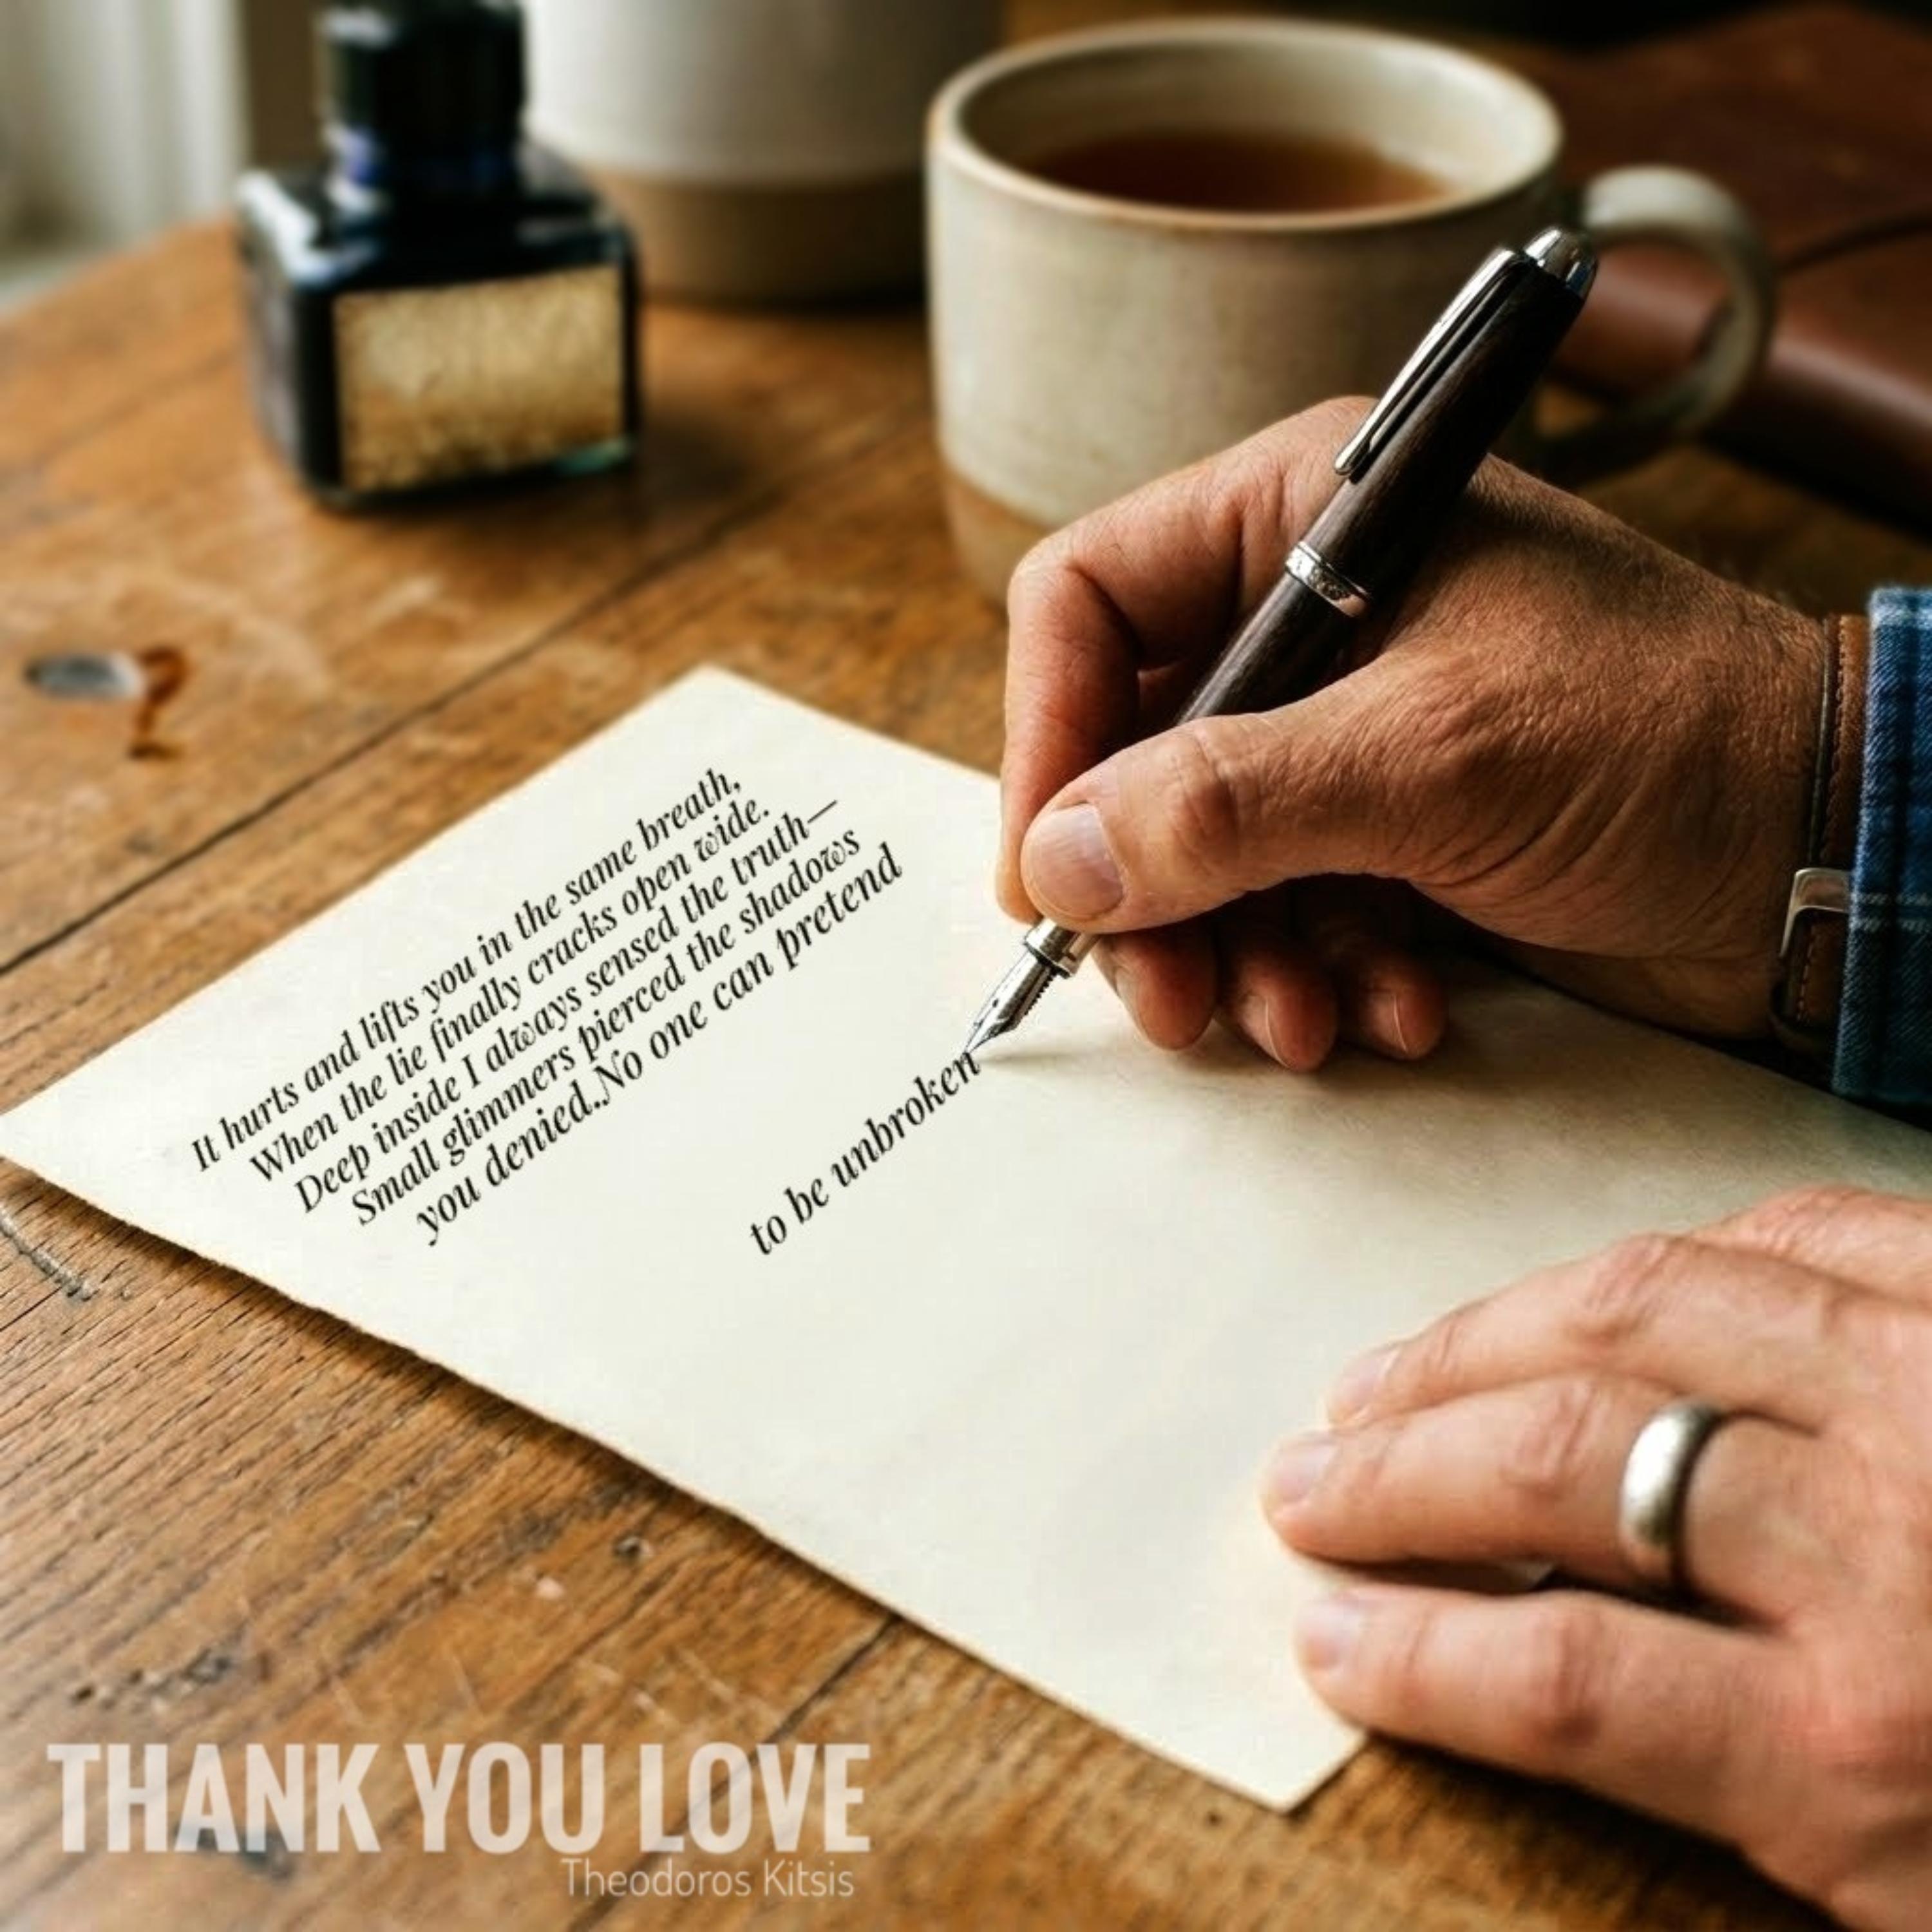 It hurts and lifts you in the same breath,
When the lie finally cracks open wide.
Deep inside I always sensed the truth—
Small glimmers pierced the shadows
you denied..No one can pretend
to be unbroken
THANK YOU LOVE
Theodoros Kitsis